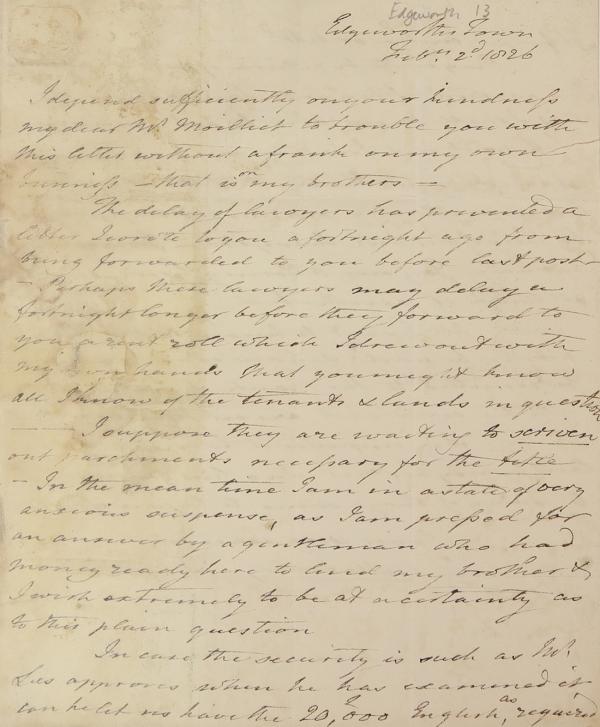 Edgeworth 13
Edgeworths Town
Feby. 2d. 1826
I depend sufficiently on your kindness
my dear Mr. Moilliet to trouble you with
this letter without a frank on my own
business — that is on my brothers —
The delay of lawyers has prevented a
letter I wrote to you a fortnight ago from
being forwarded to you before last post —
— Perhaps these lawyers may delay a
fortnight longer before they forward to
you a rent roll which I drew out with
my own hands that you might know
all I know of the tenants & lands in question
— I suppose they are waiting to scriven
out parchments necessary for the title
— In the mean time I am in a state of very
anxious suspense, as I am pressed for
an answer by a gentleman who had
money ready here to lend my brother &
I wish extremely to be at a certainty as
to this plain question
In case the security is such as Mr.
Lees approves when he has examined it
can he let us have the 20,000£ English, as required